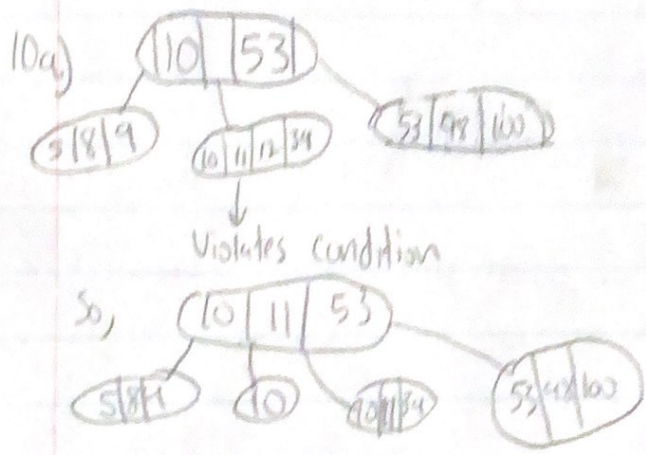 10a)
10 | 53
5|8|9 10|11|12|34 53|98|100
Violates condition
So, 10 | 11 | 53
5|8|9 10 10|11|34 53|98|100